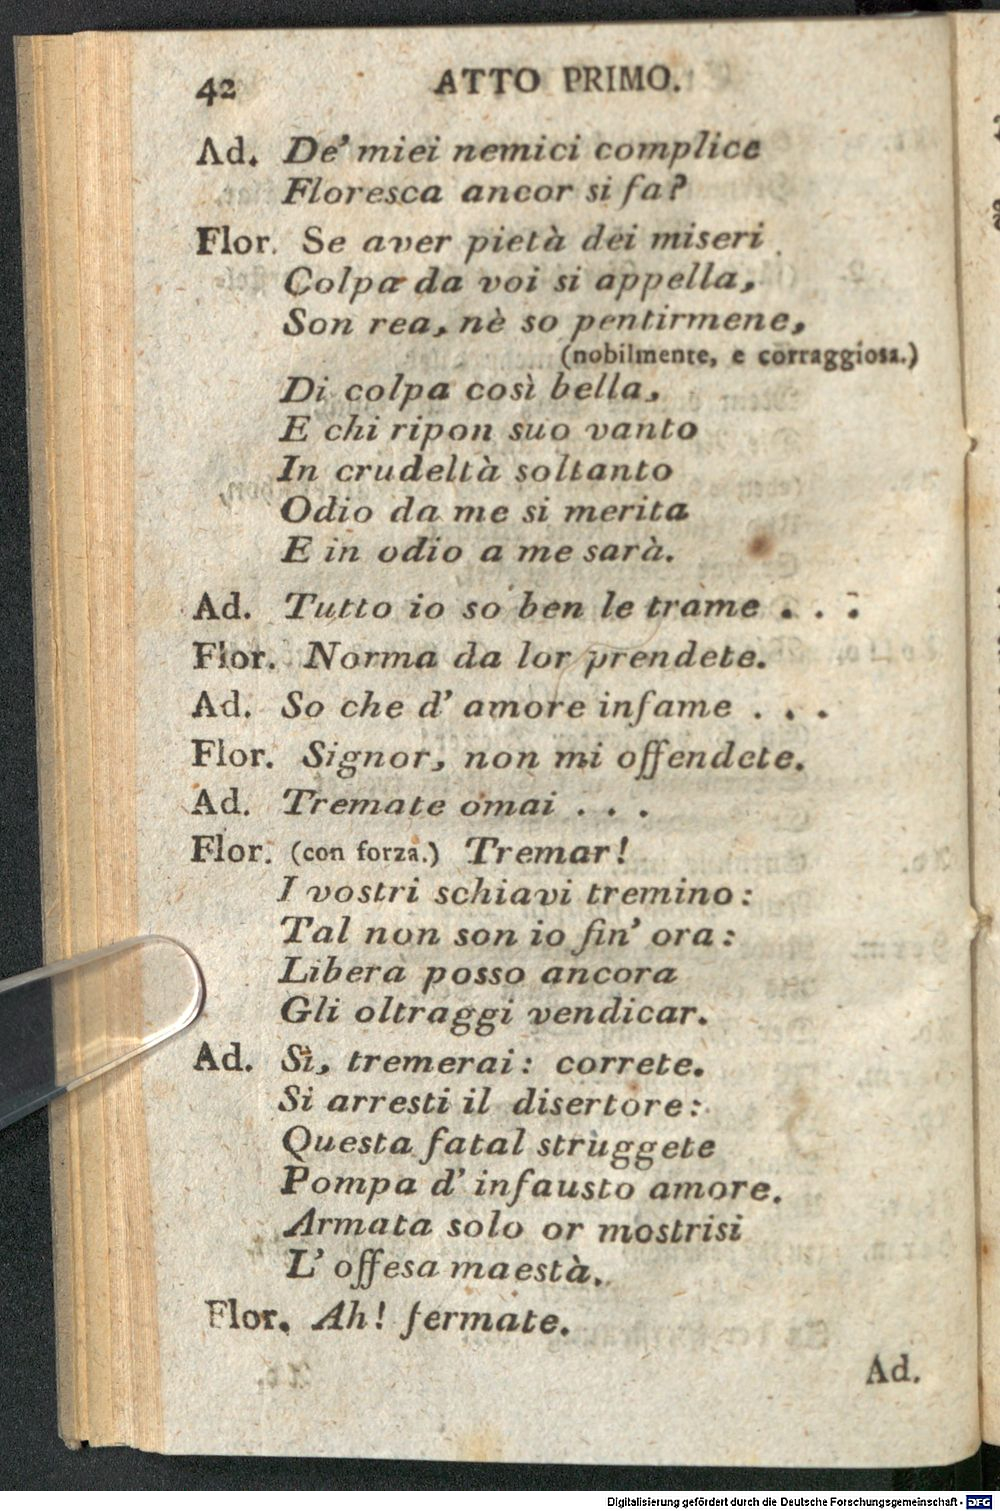 42 ATTO PRIMO.
Ad. De' miei nemici complice
Floresca ancor si fa?
Flor. Se aver pietà dei miseri
Colpa da voi si appella,
Son rea, nè so pentirmene,
(nobilmente, e corraggiosa.)
Di colpa così bella,
E chi ripon suo vanto
In crudeltà soltanto
Odio da me si merita
E in odio a me sarà.
Ad. Tutto io so ben le trame . . .
Flor. Norma da lor prendete.
Ad. So che d' amore infame . . .
Flor. Signor, non mi offendete.
Ad. Tremate omai . . .
Flor. (con forza.) Tremar!
I vostri schiavi tremino:
Tal non son io fin' ora:
Libera posso ancora
Gli oltraggi vendicar.
Ad. Sì, tremerai: correte.
Si arresti il disertore:
Questa fatal struggete
Pompa d' infausto amore.
Armata solo or mostrisi
L' offesa maestà.
Flor. Ah! fermate.
Ad.
Digitalisierung gefördert durch die Deutsche Forschungsgemeinschaft - DFG